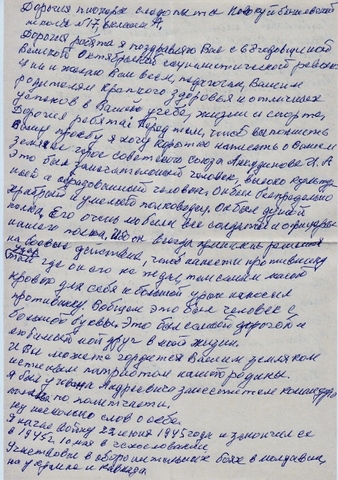 Дорогия пионеры следопыты Новокуйбышевской
школы №17, класса А,
Дорогия ребята я поздравляю Вас с 63 годовщиной
Великого Октябрьской социалистической револю
ции и желаю Вам всем, педагогам, Вашим
родителям крепкого здоровья и отличных
успехов в Вашей учебе, жизни и спорте,
Дорогия ребята! Перед тем, чтоб выполнить
Вашу прозьбу я хочу коротко написать о Вашем
земляке герое советского союза И. А.
Это был замечательный человек, высоко культур
ный и образованный человек. Он был беспредельно
храбрый и умелый полководец. Он был душой
полка, Его очень любили все солдаты и офицеры
нашего полка. Он всегда принимал решения
на боевые действия, чтоб нанести противнику
удар
там где он его не ждет, тем самым малой
кровью для себя и большой урон наносил
противнику вообщем это был человек с
большой буквы. Это был самый дорогой и
любимый мой друг в моей жизни.
И Вы можете гордится Вашим земляком
истеным патриотом нашей родины.
Я был у Ивана Андреевича заместителем командира
полка по политчасти.
ну несколько слов о себе.
Я начал войну 22 июня 1945 года и закончил ее
в 1945г. 10 мая в чехословакии
Участвовал в оборонительных боях в молдавии,
на украине и кавказа.